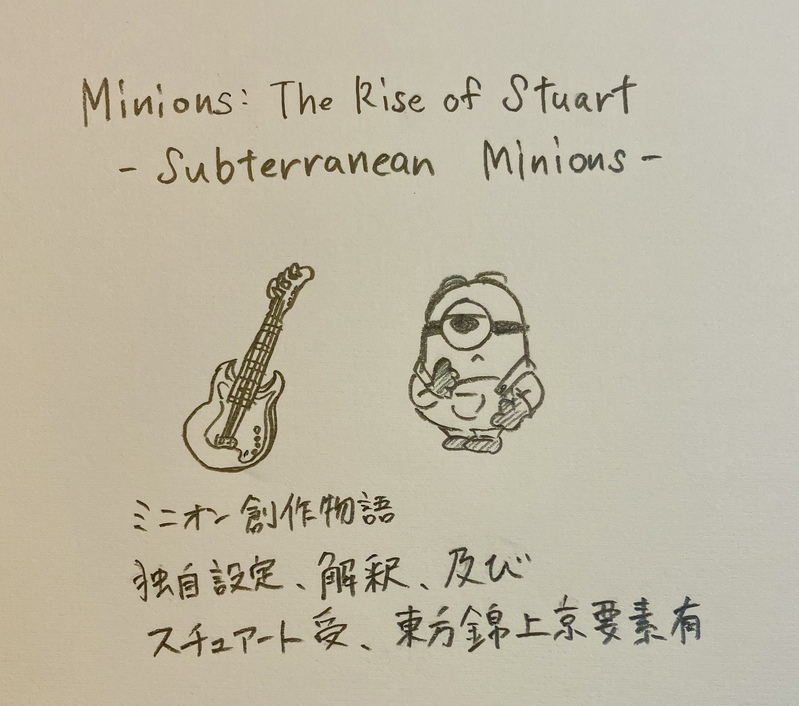 Minions: The Rise of Stuart
- Subterranean Minions -
ミニオン創作物語
独自設定、解釈、及び
スチュアート受、東方錦上京要素有